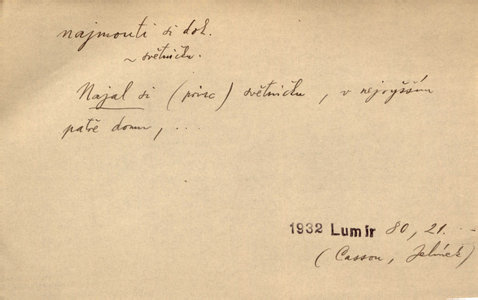 najmouti si dok.
~ světničku.
Najal si (princ) světničku, v nejvyšším
patře domu, ...
1932 Lumír 80, 21. --
(Cassou, Jelínek)